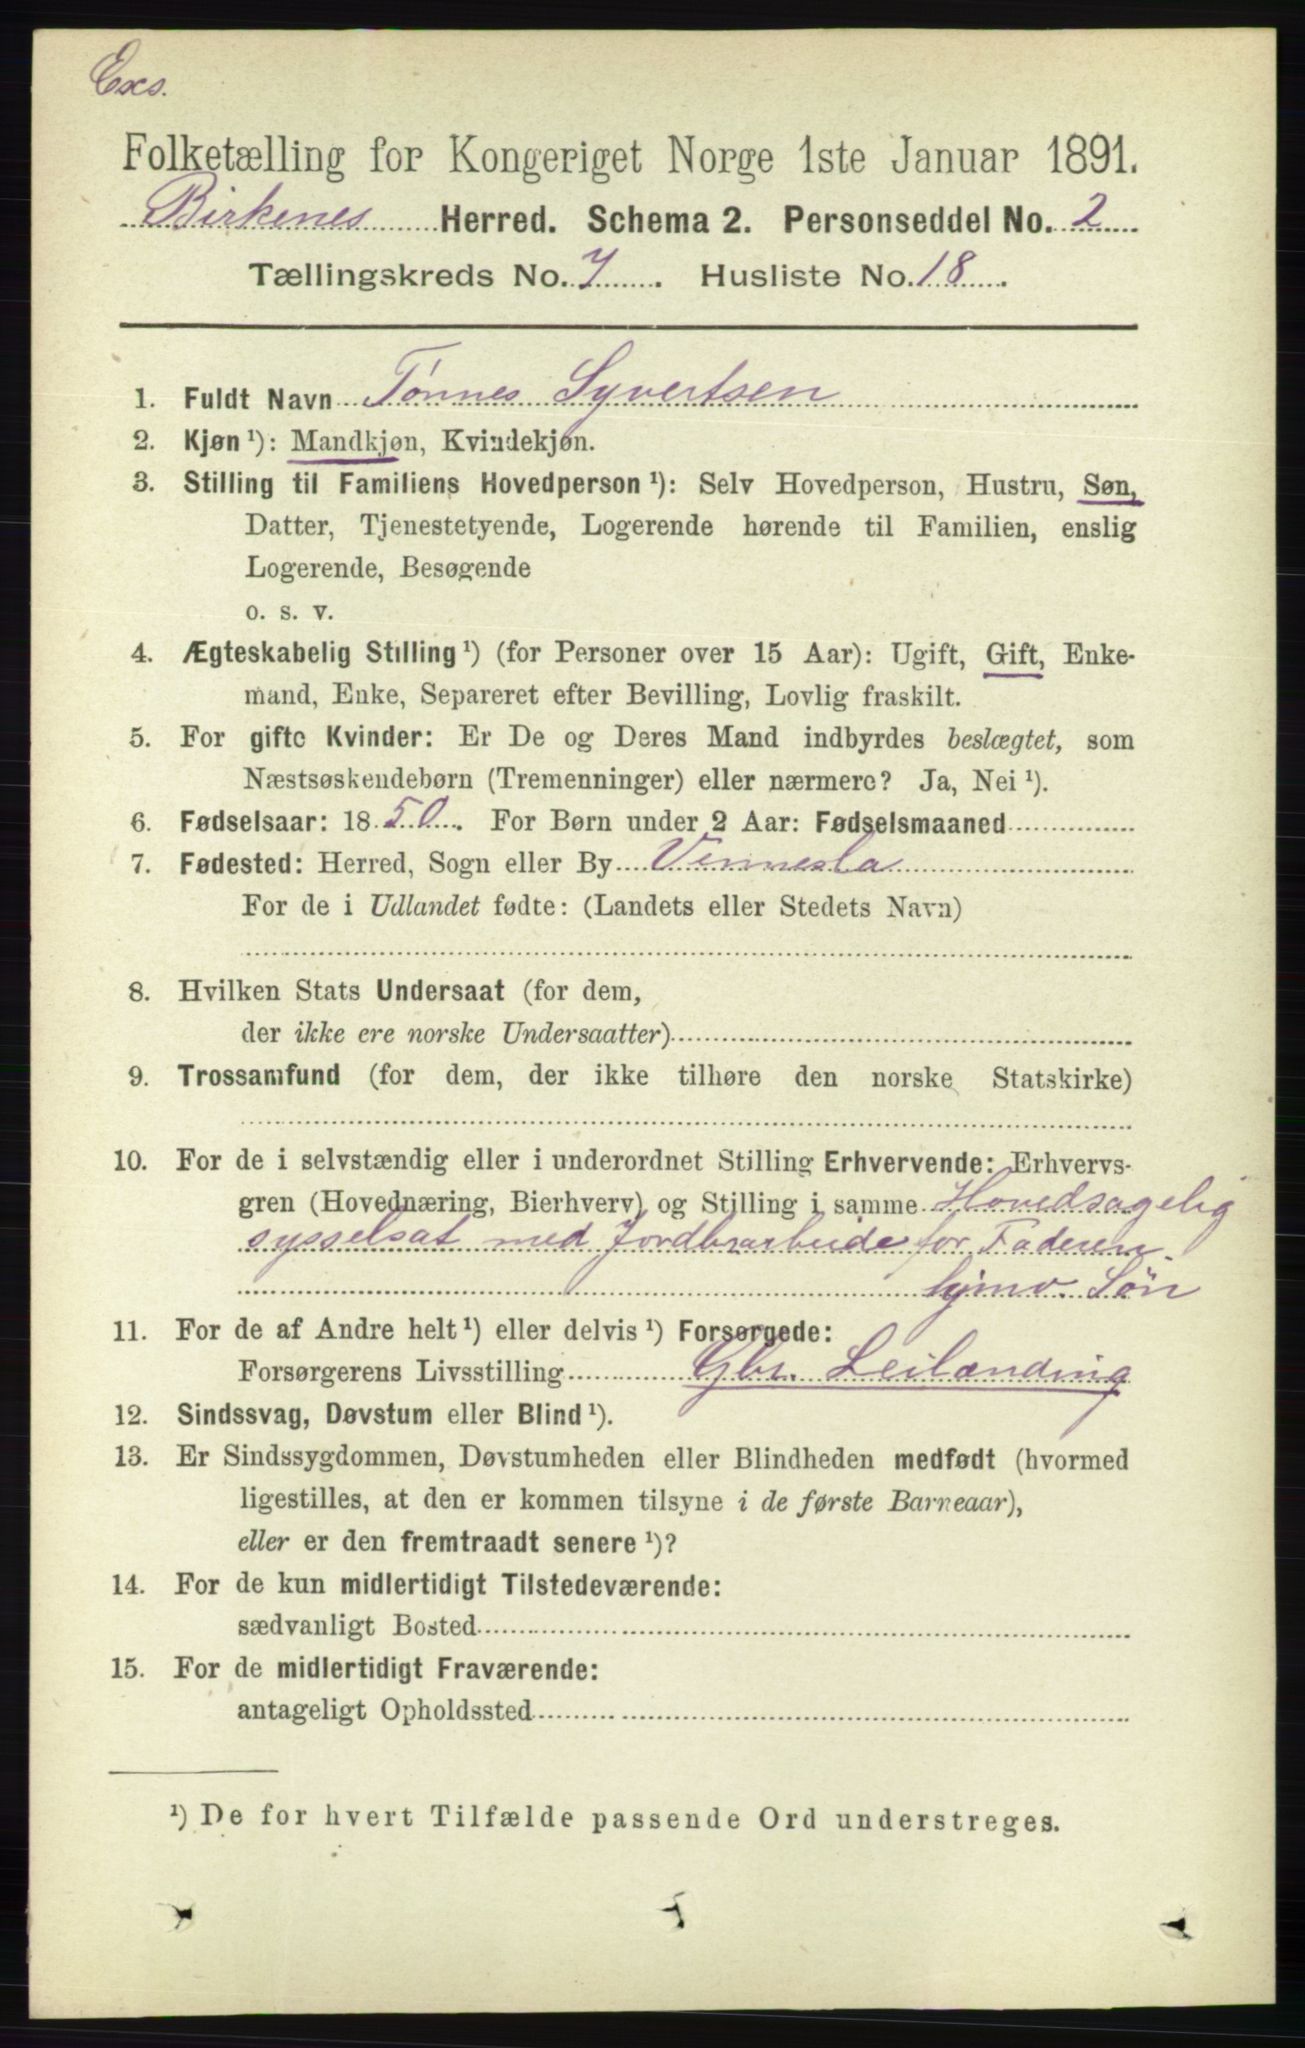 Exs.
Folketælling for Kongeriget Norge 1ste Januar 1891.
Birkenes Herred. Schema 2. Personseddel No. 2
Tællingskreds No. 7. Husliste No. 18.
1. Fuldt Navn Tønnes Syvertsen
2. Kjøn ¹): Mandkjøn, Kvindekjøn.
3. Stilling til Familiens Hovedperson ¹): Selv Hovedperson, Hustru, Søn,
Datter, Tjenestetyende, Logerende hørende til Familien, enslig
Logerende, Besøgende
o. s. v.
4. Ægteskabelig Stilling ¹) (for Personer over 15 Aar): Ugift, Gift, Enke-
mand, Enke, Separeret efter Bevilling, Lovlig fraskilt.
5. For gifte Kvinder: Er De og Deres Mand indbyrdes beslægtet, som
Næstsøskendebørn (Tremenninger) eller nærmere? Ja, Nei ¹).
6. Fødselsaar: 1850. For Børn under 2 Aar: Fødselsmaaned
7. Fødested: Herred, Sogn eller By Vennesla
For de i Udlandet fødte: (Landets eller Stedets Navn)
8. Hvilken Stats Undersaat (for dem,
der ikke ere norske Undersaatter)
9. Trossamfund (for dem, der ikke tilhøre den norske Statskirke)
10. For de i selvstændig eller i underordnet Stilling Erhvervende: Erhvervs-
gren (Hovednæring, Bierhverv) og Stilling i samme Hovedsagelig
sysselsat med Jordbrarbeide for Faderen.
hjmv. Søn
11. For de af Andre helt ¹) eller delvis ¹) Forsørgede:
Forsørgerens Livsstilling Gbr. Leilænding
12. Sindssvag, Døvstum eller Blind ¹).
13. Er Sindssygdommen, Døvstumheden eller Blindheden medfødt (hvormed
ligestilles, at den er kommen tilsyne i de første Barneaar),
eller er den fremtraadt senere ¹)?
14. For de kun midlertidigt Tilstedeværende:
sædvanligt Bosted
15. For de midlertidigt Fraværende:
antageligt Opholdssted
¹) De for hvert Tilfælde passende Ord understreges.